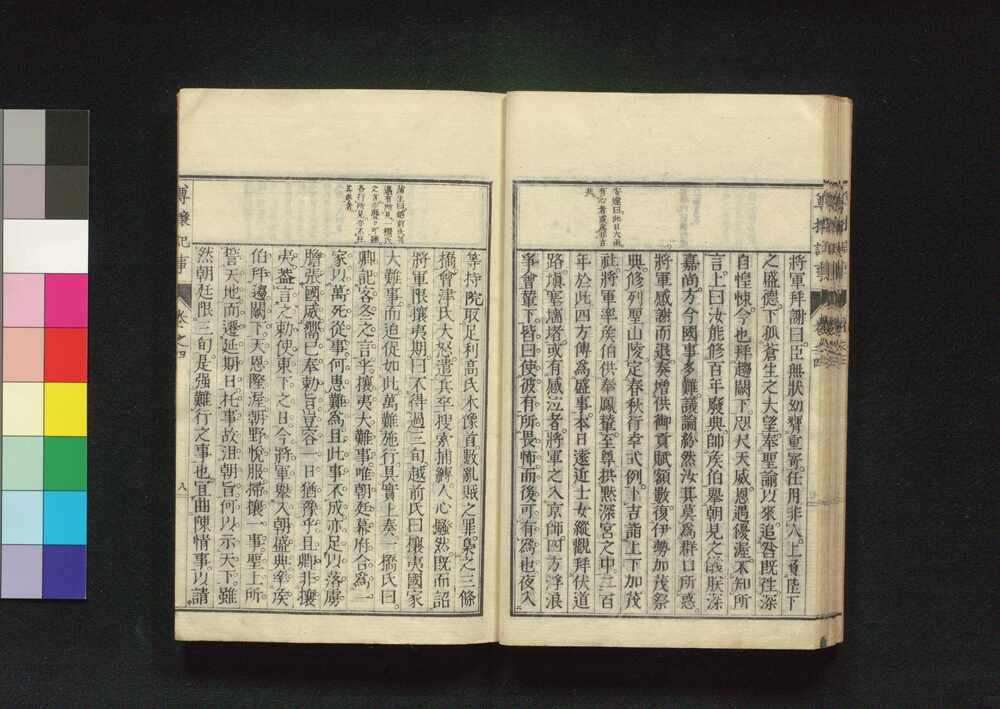 將軍拜謝曰臣無狀幼齡重寄任用非人上負陛下
之盛德下孤蒼生之大望奉聖諭以來追咎既往深
自惶悚今也拜趨闕下咫尺天威恩遇優渥不知所
言上曰汝能修百年廢典帥矦伯舉朝見之儀朕深
嘉尚方今國事多難議論紛然汝其莫為群口所惑
將軍感謝而退奏增供御貢賦額數復伊勢加茂祭
典修列聖山陵定春秋行幸式例下吉詣上下加茂
社將軍率矦伯供奉鳳輦至尊拱默深宮之中三百
年於此四方傳為盛事本日遠近士女縱觀拜伏道
路填塞墻堵或有感泣者將軍之入京師四方浮浪
爭會輦下皆曰使彼有所畏怖而後可有為也夜入
安達曰此日大雨
有心者或為非吉
兆
等持院取足利高氏木像首數亂賊之罪梟之三條
橋會津氏大怒遣兵卒搜索捕縛人心騷然既而詔
將軍限攘夷期曰不得過三旬越前氏曰攘夷國家
大難事而迫促如此萬難施行具實上奏一橋氏曰
卿記客冬之言乎攘夷大難事唯朝廷幕府合為一
家以萬死從事何患難為且此事不成亦足以落虜
膽張國威嚮已奉勅旨豈容一日猶豫乎且卿非攘
夷蓋言之勅使東下之日今將軍舉入朝盛典率矦
伯拜邊闕下天恩隆渥朝野悅服掃攘一事聖上所
誓天地而遷延期日托事故沮朝旨何以示天下雖
然朝廷限三旬是强難行之事也宜曲陳情事以請
尊攘紀事
卷之四
八